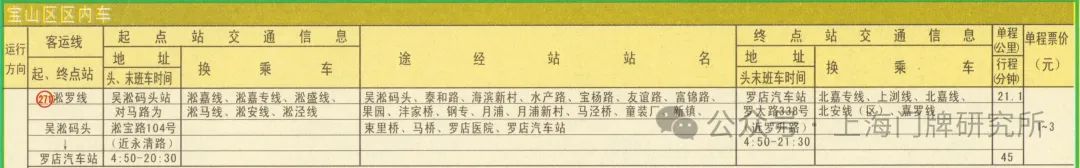 宝山区区内车
运行方向 客运线 起、终点站 起点站交通信息 地址 头、末班车时间 换乘车 途经站站名 终点站交通信息 地址 头末班车时间 换乘车 单程(公里) 行程(分钟) 单程票价(元)
270 淞罗线 吴淞码头站 淞嘉线、淞嘉专线、淞盛线、 吴淞码头、泰和路、海滨新村、水产路、宝杨路、友谊路、富锦路、 罗店汽车站 北嘉专线、上浏线、北嘉线、 21.1
对马路为 淞马线、淞安线、淞泾线 果园、沣家桥、钢专、月浦、月浦新村、马泾桥、童装厂、新镇、 罗太路338号 北安线(区)、嘉罗线
吴淞码头 淞宝路104号 束里桥、马桥、罗店医院、罗店汽车站 (近罗升路) 1~3
↓ (近永清路) 5:50-21:30
罗店汽车站 4:50-20:30 45
公众号·上海门牌研究所